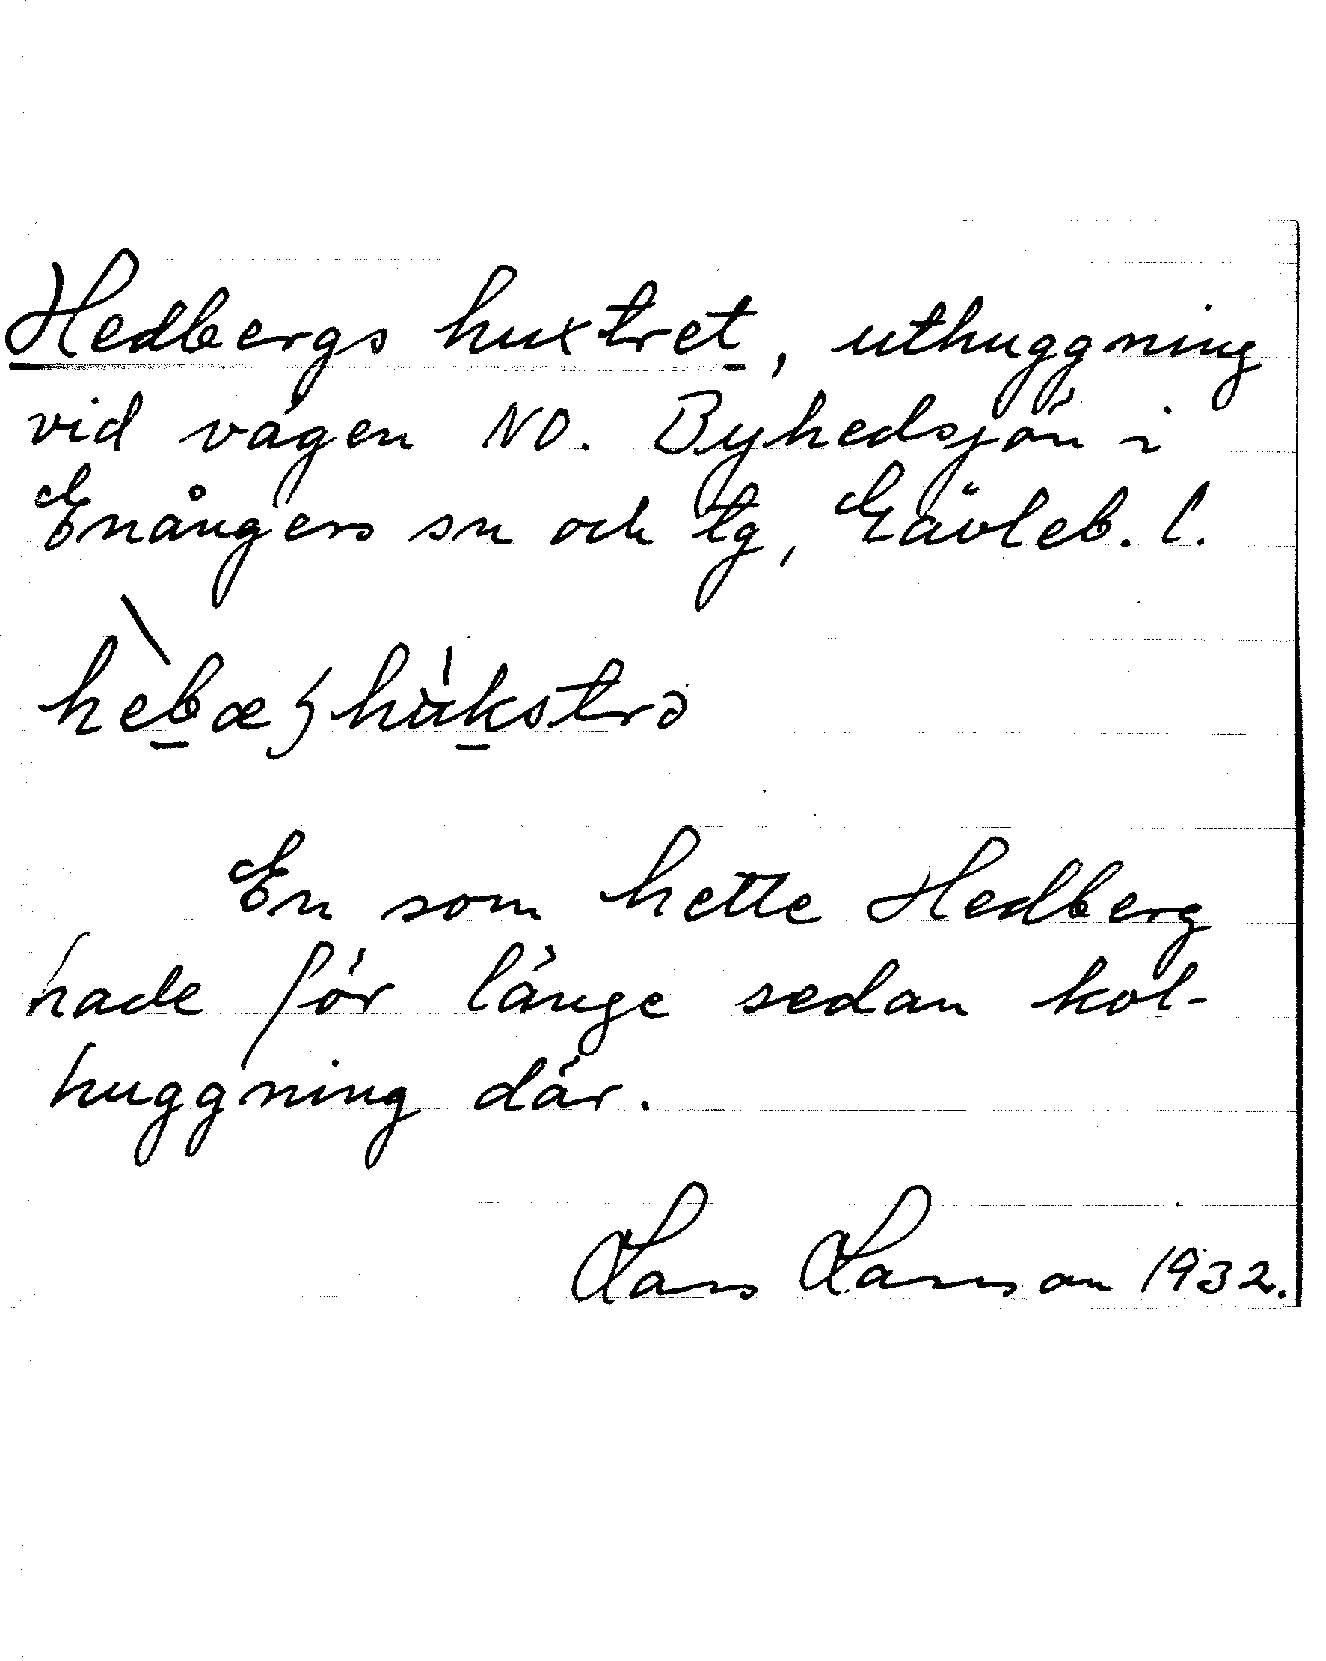 Hedbergs huxtret, uthuggning
vid vägen NO. Byhedsjön i
Enångers sn och tg, Gävleb. l.
hèbæʃ hùkstrə
En som hette Hedberg
hade för länge sedan kol-
huggning där.
Lars Larsson 1932.